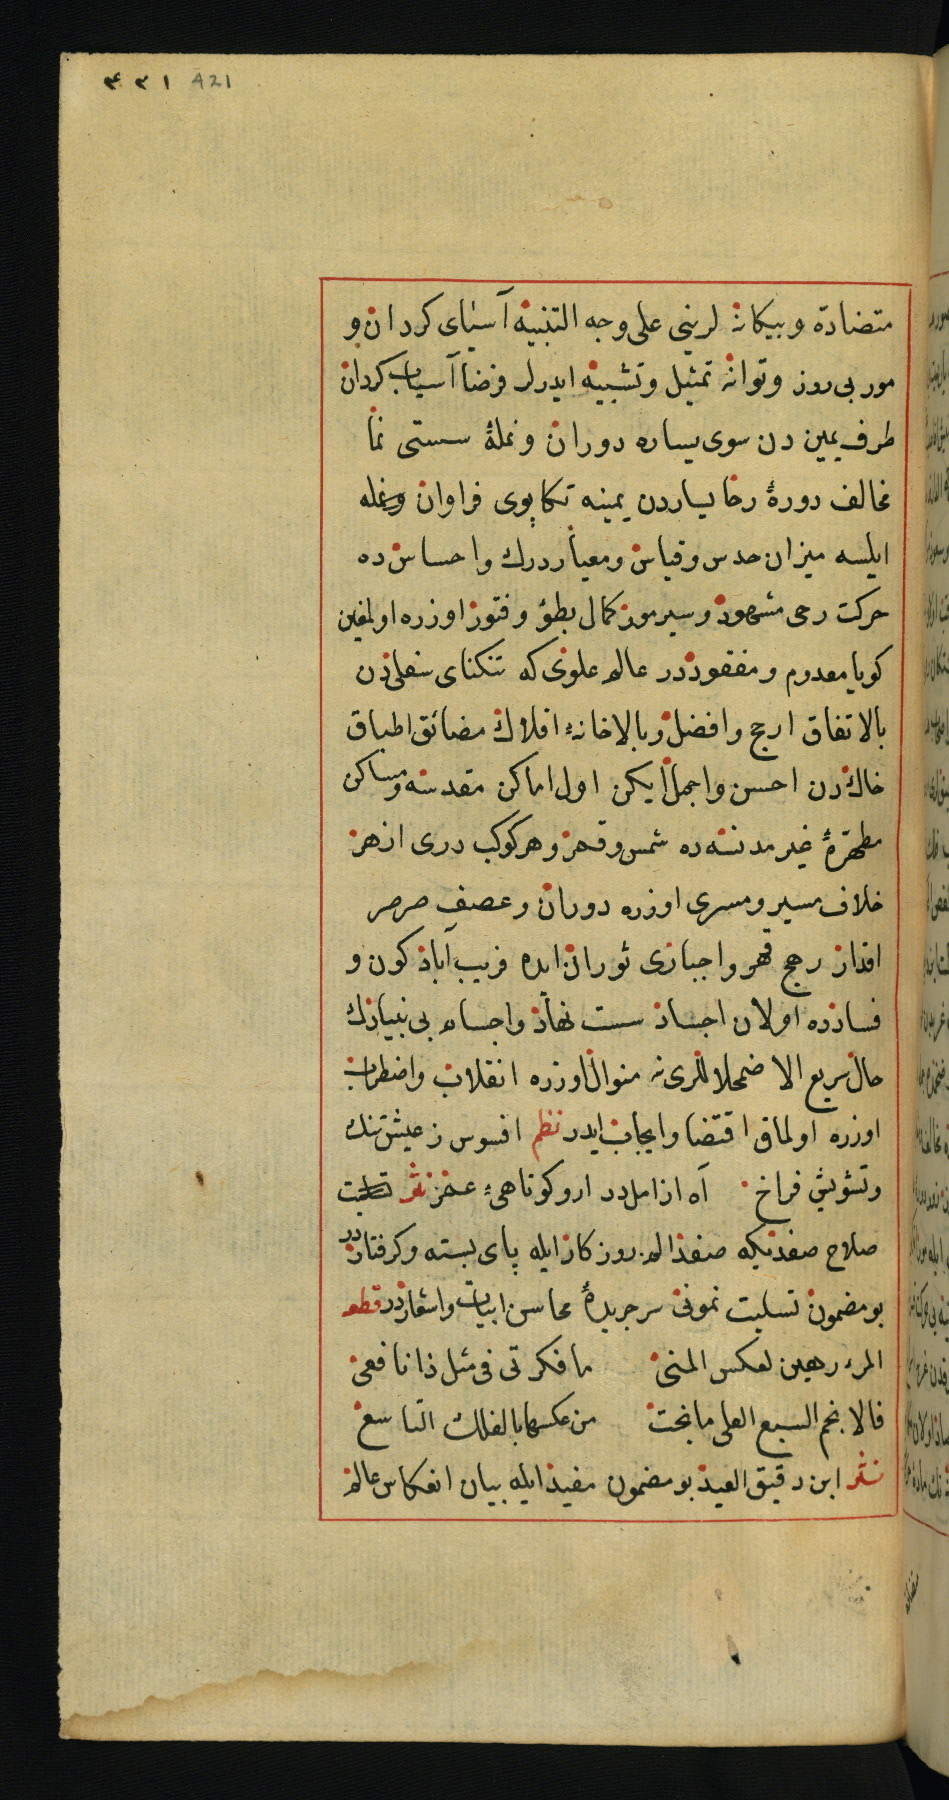 ٤٢١ 421
متضادّه و بیکانه لرینی علی وجه التنبیه آسیای کردان و
مور بی روز و توانه تمثیل و تشبیه ایدرلر فرضا آسیاب کردان
طرف یمین دن سوی یساره دوران و نملۀ سستی نما
مخالف دورۀ رحا یساردن یمینه تکاپوی فراوان
ایلسه میزان حدس و قیاس و معیار درك و احساس ده
حرکت رحی مشهود و سیر مور کمال بطؤ و فتور اوزره اولمغین
کویا معدوم و مفقوددر عالم علوی که تنکنای سفلی دن
بالاتفاق ارجح و افضل و بالاخانۀ افلاك مضائق اطباق
خاك دن احسن و اجمل ایکن اول اماکن مقدسه و مساکن
مطهّرۀ غیر مدنسه ده شمس و قمر و هر کوکب دری ازهر
خلاف مسیر و مسری اوزره دوران و عصف صرصر
اقدار رهج قهر و اجباری ثوران ایده فریب آباد کون و
فسادده اولان اجساد سست نهاد و اجسام بی بنیادك
حال سریع الاضمحلاللری نه منوال اوزره انقلاب و اضطراب
اوزره اولماق اقتضا و ایجاب ایدر نظم افسوس ز عیش تنك
و تشویش فراخ آه از امل دراز و کوتاهیء عمر نثر
صلاح صفدیکه صفد الم روزکار ایله پای بسته و کرفتاردر
بو مضمون تسلیت نمونی سر جریدۀ محاسن ابیات و اشعاردر قطعه
المرء رهین لعکس المنی ما فکرتی فی مثل ذا نافعی
فالانجم السبع العلی ما نجت من عکسها بالفلك التاسع
نثر ابن دقیق العید بو مضمون مفید ایله بیان انعکاس عالم